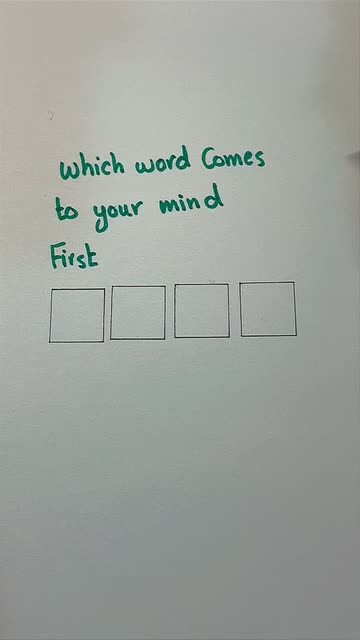 which word Comes
to your mind
First